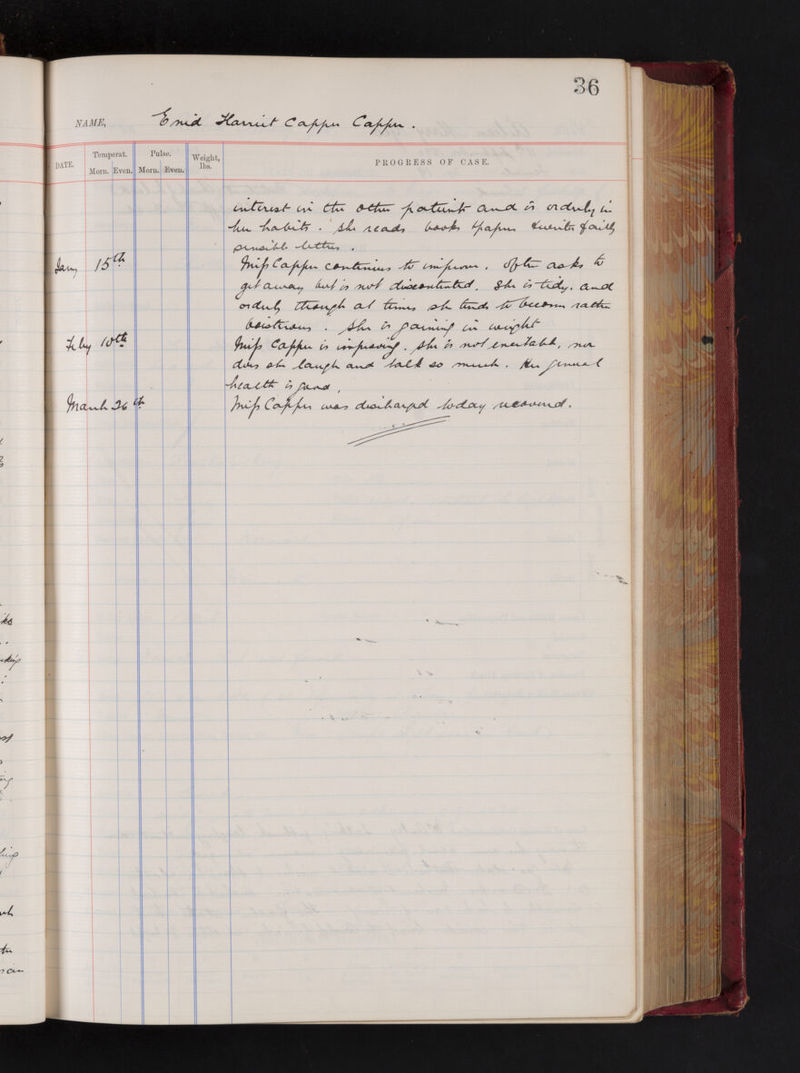 36
NAME, Enid Harriet Capper Capper.
DATE. Temperat. Morn. Even. Pulse. Morn. Even. Weight, lbs. PROGRESS OF CASE.
interest in the other patients and is orderly in
her habits. She reads books & papers & writes fairly
sensible letters.
Jany 15th Miss Capper continues to improve. Often asks to
get away but is not discontented. She is tidy, and
orderly though at times she tends to become rather
boisterous. She is gaining in weight
Feby 10th Miss Capper is improving. She is not excitable, nor
does she laugh and talk so much. Her general
health is good.
March 26th Miss Capper was discharged today recovered.